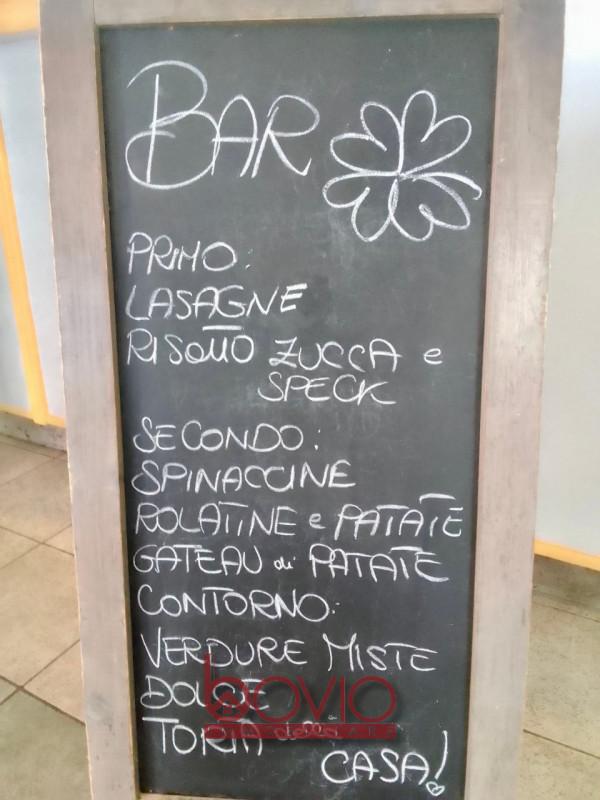 BAR
PRIMO:
LASAGNE
RISOTTO ZUCCA e
SPECK
SECONDO:
SPINACCINE
ROLATINE e PATATE
GATEAU di PATATE
CONTORNO:
VERDURE MISTE
DOLCE
TORTA della
CASA!
bovio